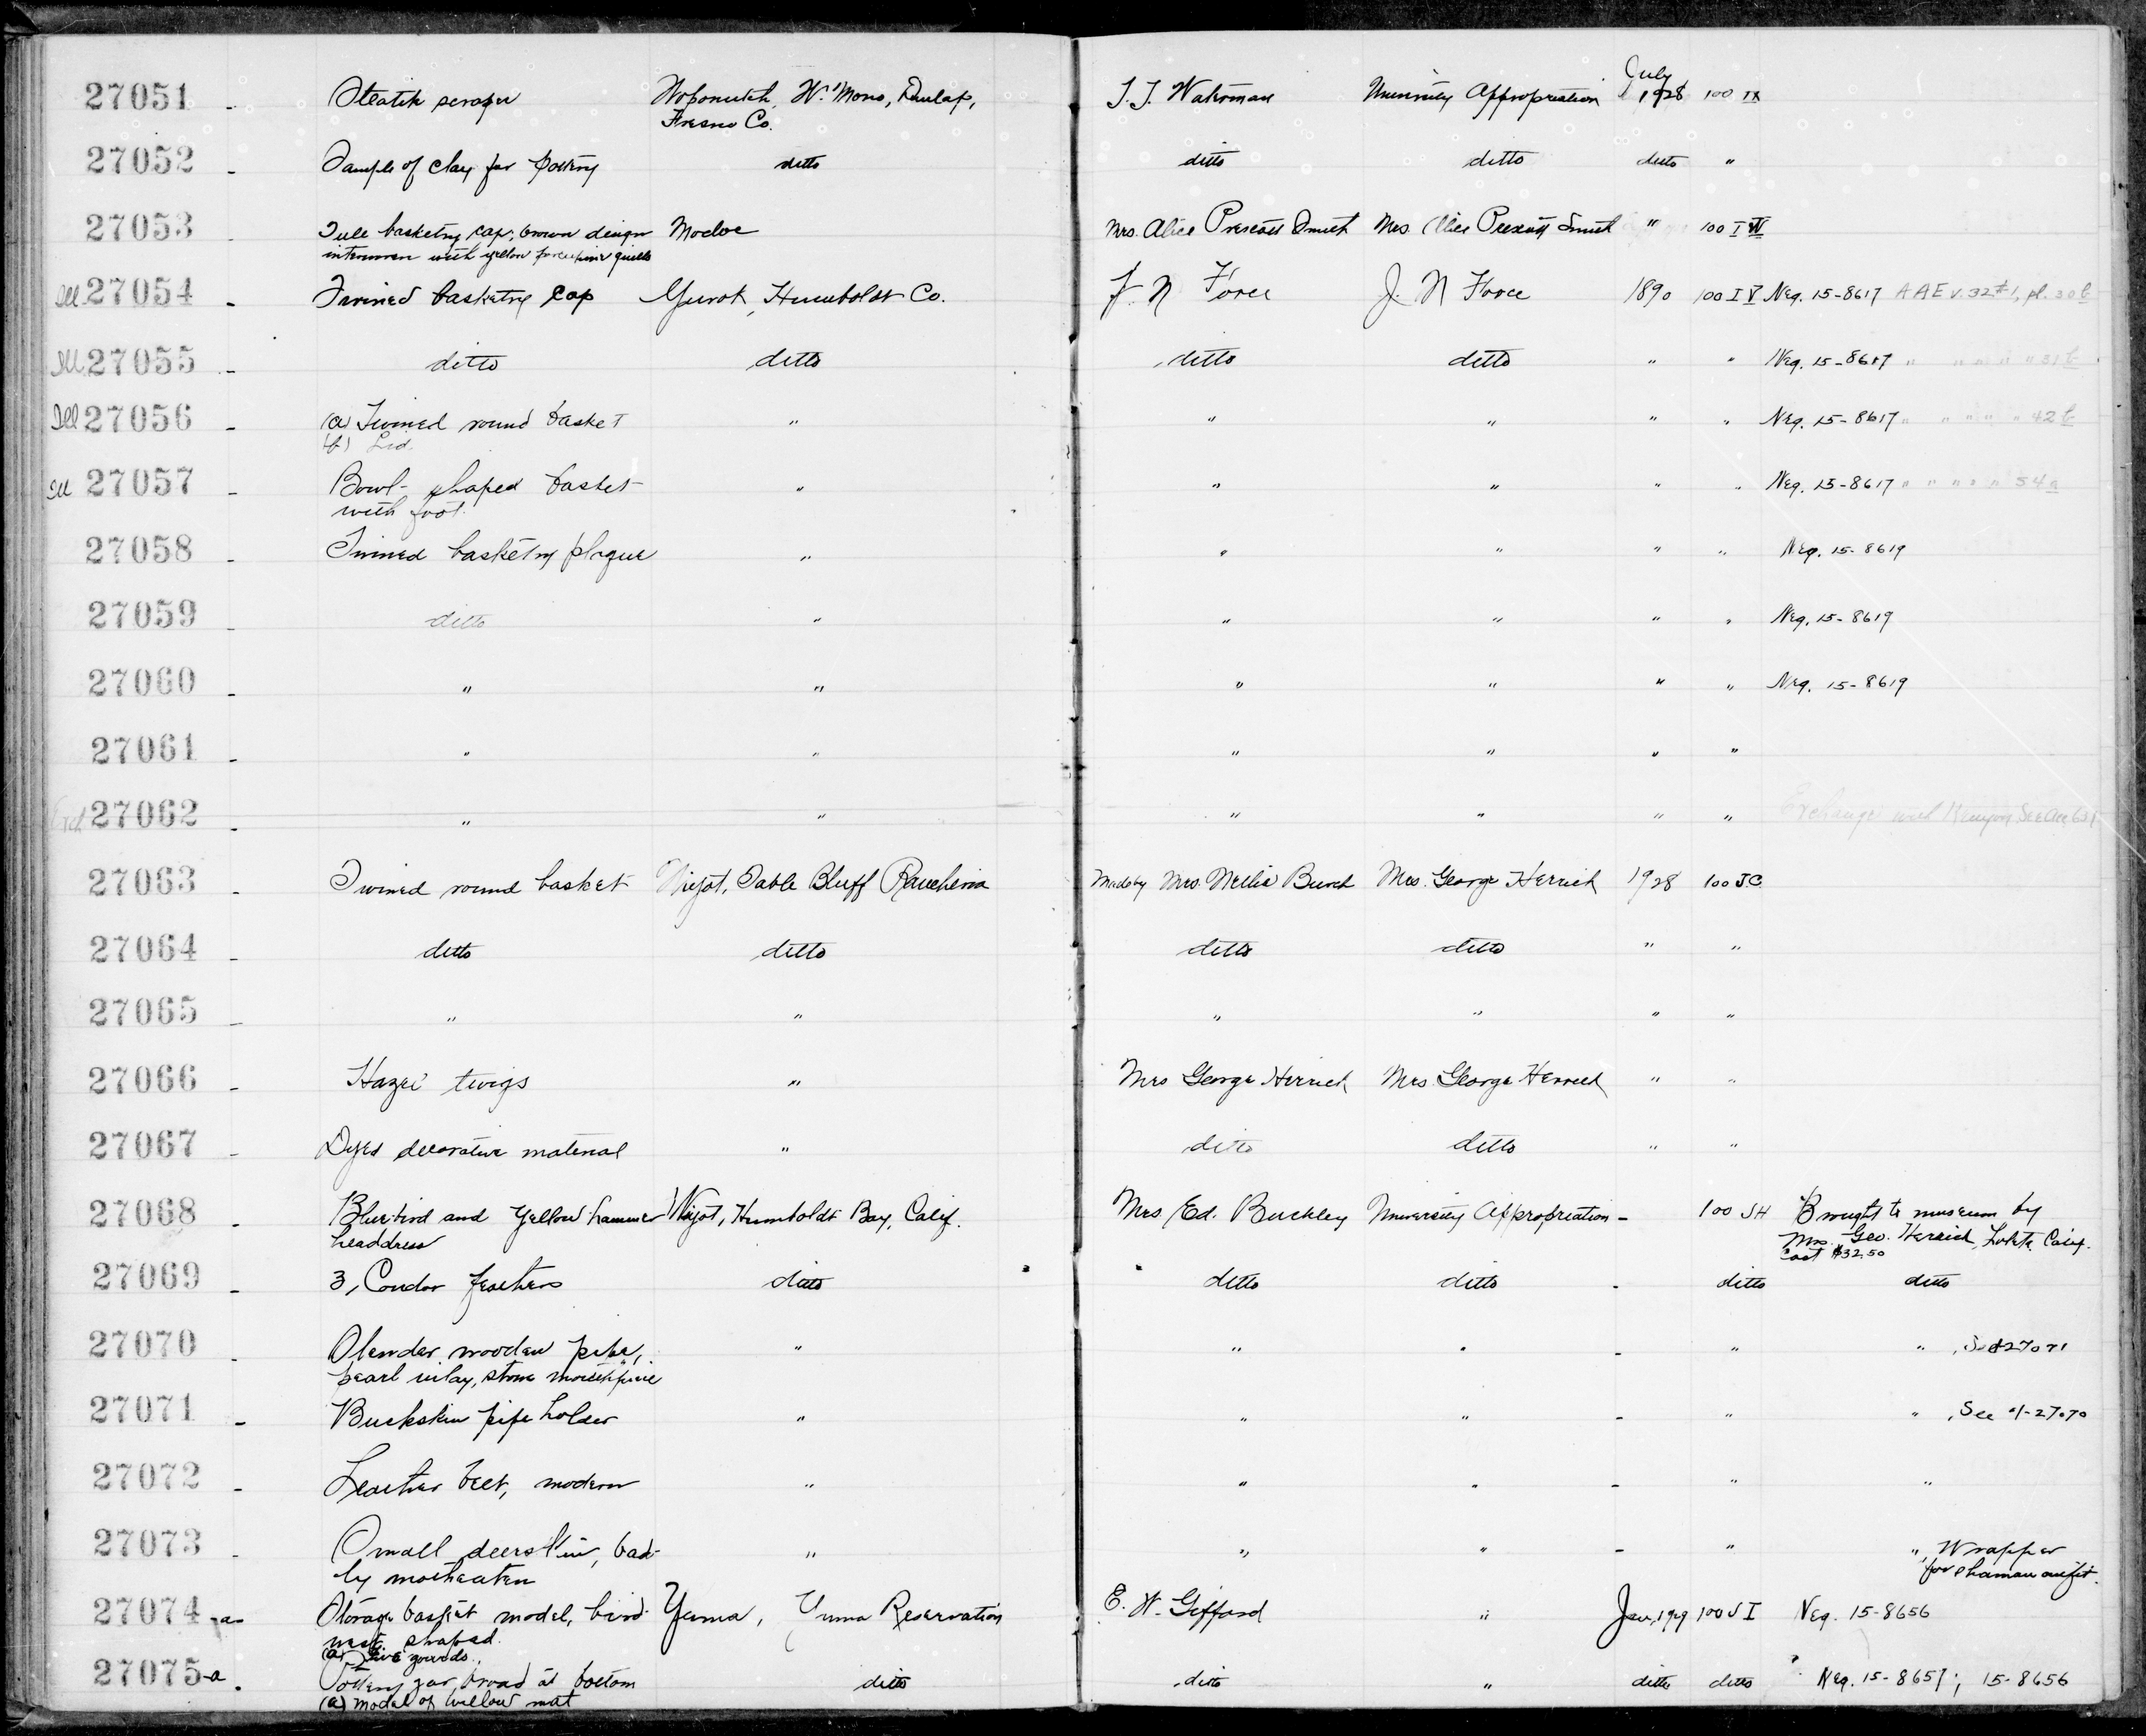 27051 - Steatite scraper Woponutch, W. Mono, Dunlap, T.T. Waterman University Appropriation July 1928 100 IX
Fresno Co.
27052 - Sample of clay for pottery ditto ditto ditto ditto "
27053 - Tule basketry cap, brown design Modoc Mrs. Alice Prescott Smith Mrs. Alice Prescott Smith " 100 I W
interwoven with yellow porcupine quills
Ill 27054 - Twined basketry cap Yurok, Humboldt Co. J. N Force J. N Force 1890 100 I V Neg. 15-8617 AAE v.32 #1, pl. 30 b
Ill 27055 - ditto ditto ditto ditto " " Neg. 15-8617 " " " " " 31 b
Ill 27056 - (a) Twined round basket " " " " " Neg. 15-8617 " " " " " 42 b
(b) Lid.
Ill 27057 - Bowl-shaped basket " " " " " Neg. 15-8617 " " " " " 54 a
with foot.
27058 - Twined basketry plaque " " " " " Neg. 15-8619
27059 - ditto " " " " " Neg. 15-8619
27060 - " " " " " " Neg. 15-8619
27061 - " " " " " "
27062 - " " " " " " Exchange with Kenyon See Acc 631
27063 - Twined round basket Wiyot, Table Bluff Rancheria Made by Mrs. Nellie Burch Mrs. George Herrick 1928 100 J.C.
27064 - ditto ditto ditto ditto " "
27065 - " " " " " "
27066 - Hazel twigs " Mrs George Herrick Mrs. George Herrick " "
27067 - Dyed decorative material " ditto ditto " "
27068 - Bluebird and Yellowhammer Wiyot, Humboldt Bay, Calif. Mrs Ed. Buckley University Appropriation - 100 SH Brought to museum by
headdress Mrs. Geo. Herrick, Loleta, Calif.
Cost $32.50
27069 - 3, Condor feathers ditto ditto ditto - ditto ditto
27070 - Slender wooden pipe, " " " - " ", See 27071
pearl inlay, stone mouthpiece
27071 - Buckskin pipe holder " " " - " ", See 1-27070
27072 - Leather belt, modern " " " - " "
27073 - Small deerskin, bad- " " " - " ", Wrapper
ly motheaten for shaman outfit.
27074 -a- Storage basket model, bird- Yuma, Yuma Reservation E. W. Gifford " Jan, 1929 100 S I Neg. 15-8656
nest shaped.
(a) Five gourds.
27075-a. Pottery jar broad at bottom ditto ditto " ditto ditto Neg. 15-8657; 15-8656
(a) Model of willow mat